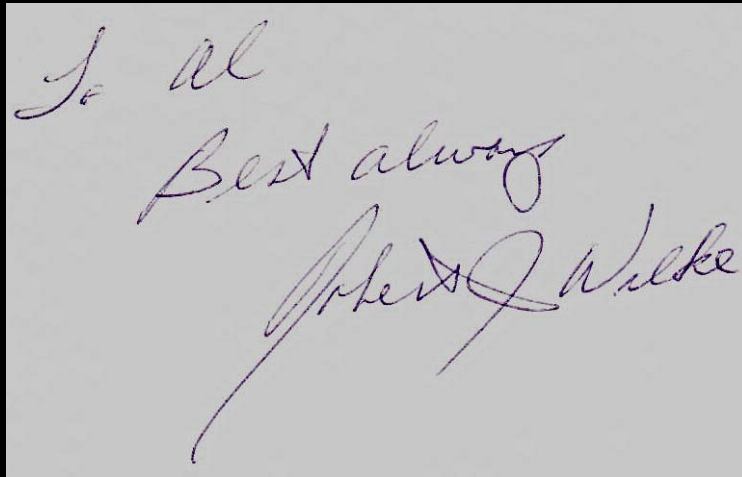 To Al
Best always
Robert J Wilke